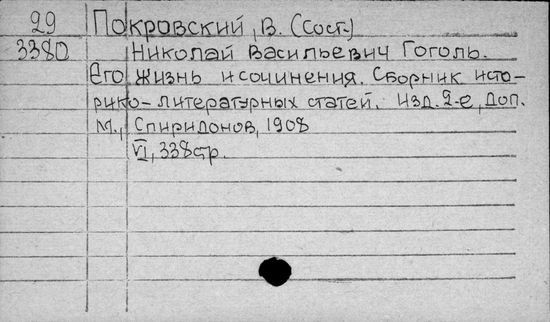 29 Покровский, В. (Сост.)
3380 Николай Васильевич Гоголь.
Его жизнь и сочинения. Сборник исто-
рико-литературных статей. Изд. 2-е, доп.
М., Спиридонов, 1908
VI, 338 стр.